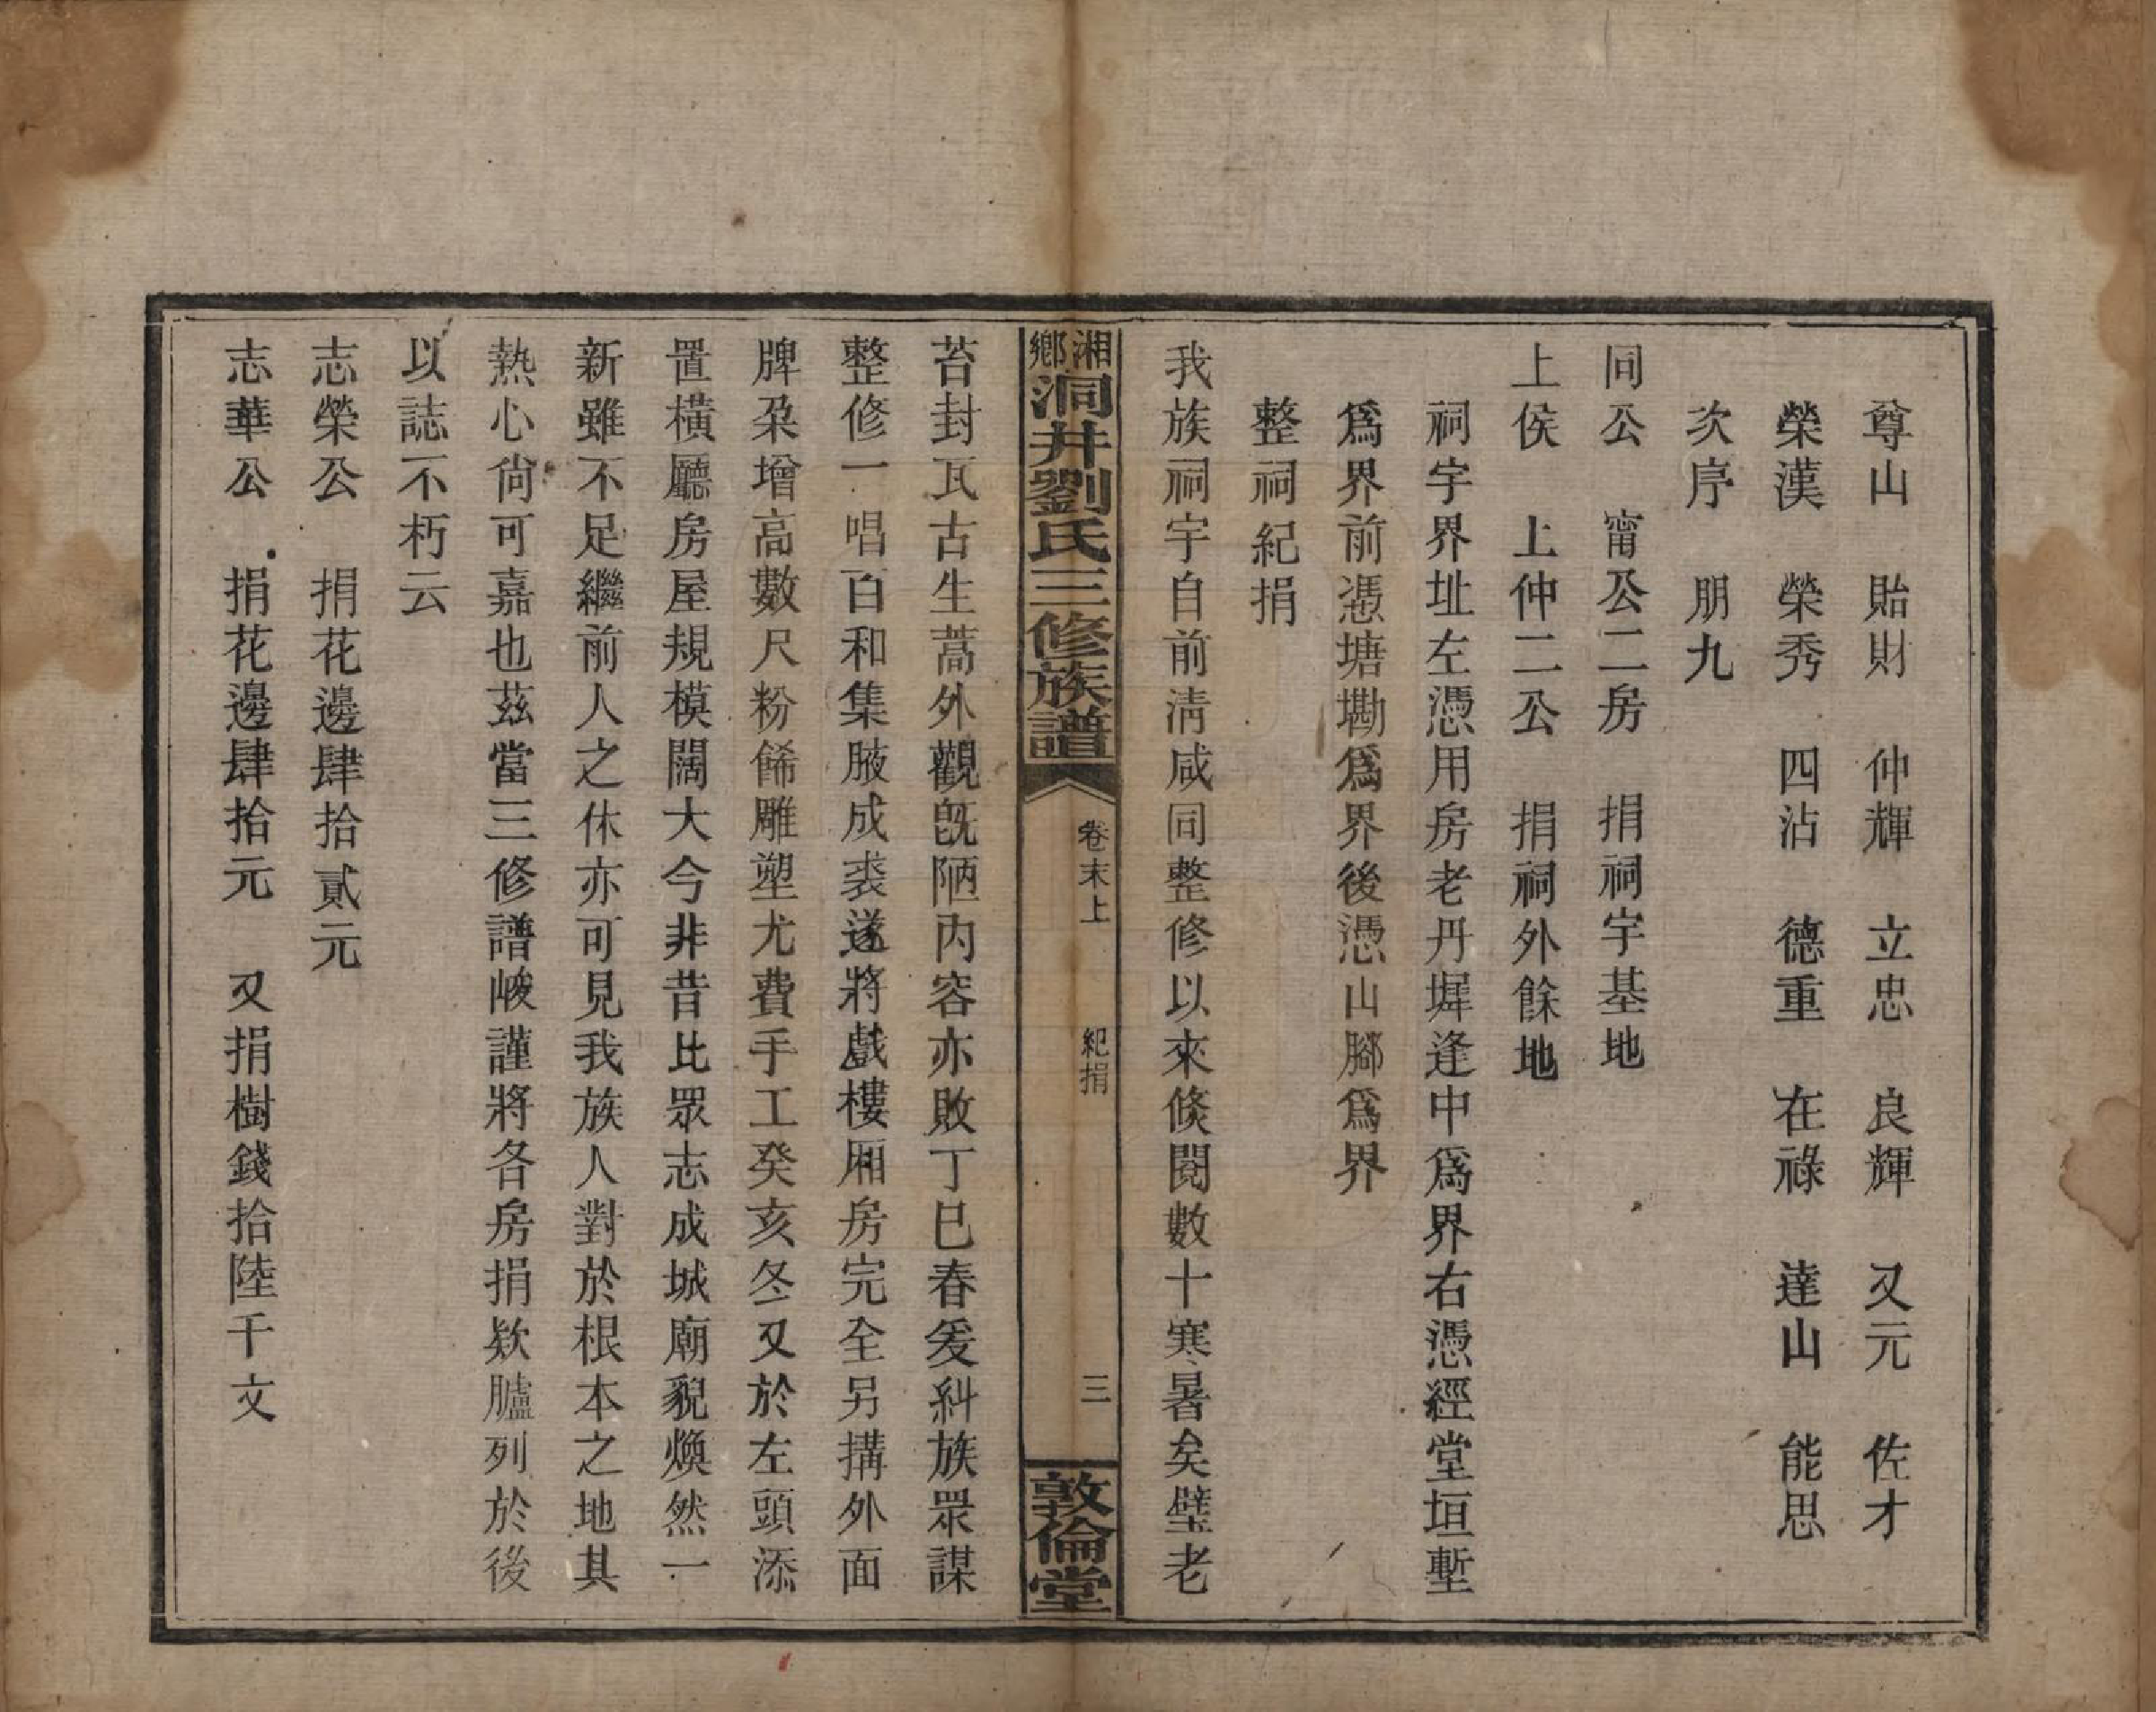 尊山　貽財　仲輝　立忠　良輝　又元　佐才
榮漢　榮秀　四沾　德重　在祿　達山　能思
次序　朋九
同公　甯公二房　捐祠宇基地
上侯　上仲二公　捐祠外餘地
祠宇界址左憑用房老丹墀逢中爲界右憑經堂垣塹
爲界前憑塘墈爲界後憑山腳爲界
整祠紀捐
我族祠宇自前淸咸同整修以來倏閱數十寒暑矣壁老
湘鄉洞井劉氏三修族譜　卷末上　紀捐　三　敦倫堂
苔封瓦古生蒿外觀旣陋內容亦敗丁巳春爰糾族眾謀
整修一唱百和集腋成裘遂將戲樓厢房完全另搆外面
牌朶增高數尺粉餙雕塑尤費手工癸亥冬又於左頭添
置橫廳房屋規模闊大今非昔比眾志成城廟貌煥然一
新雖不足繼前人之休亦可見我族人對於根本之地其
熱心尙可嘉也茲當三修譜峻謹將各房捐欵臚列於後
以誌不朽云
志榮公　捐花邊肆拾貳元
志華公　捐花邊肆拾元　又捐樹錢拾陸千文